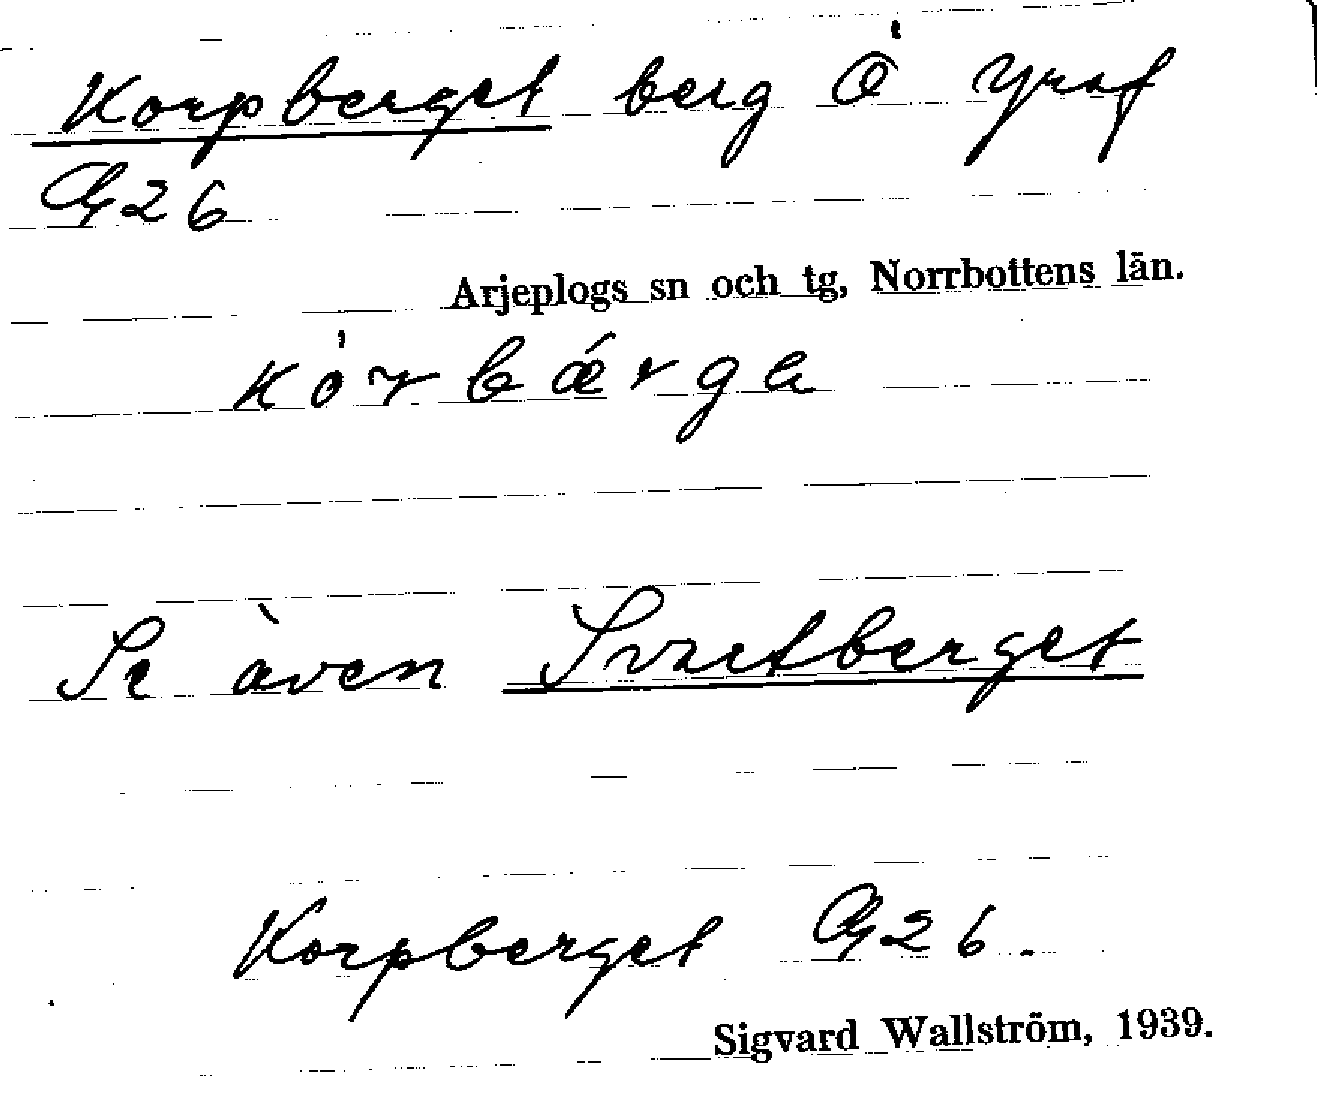 Korpberget berg Ö Yraf
G26
Arjeplogs sn och tg, Norrbottens län.
kórbǽrga
Se även Svartberget
Korpberget G26.
Sigvard Wallström, 1939.